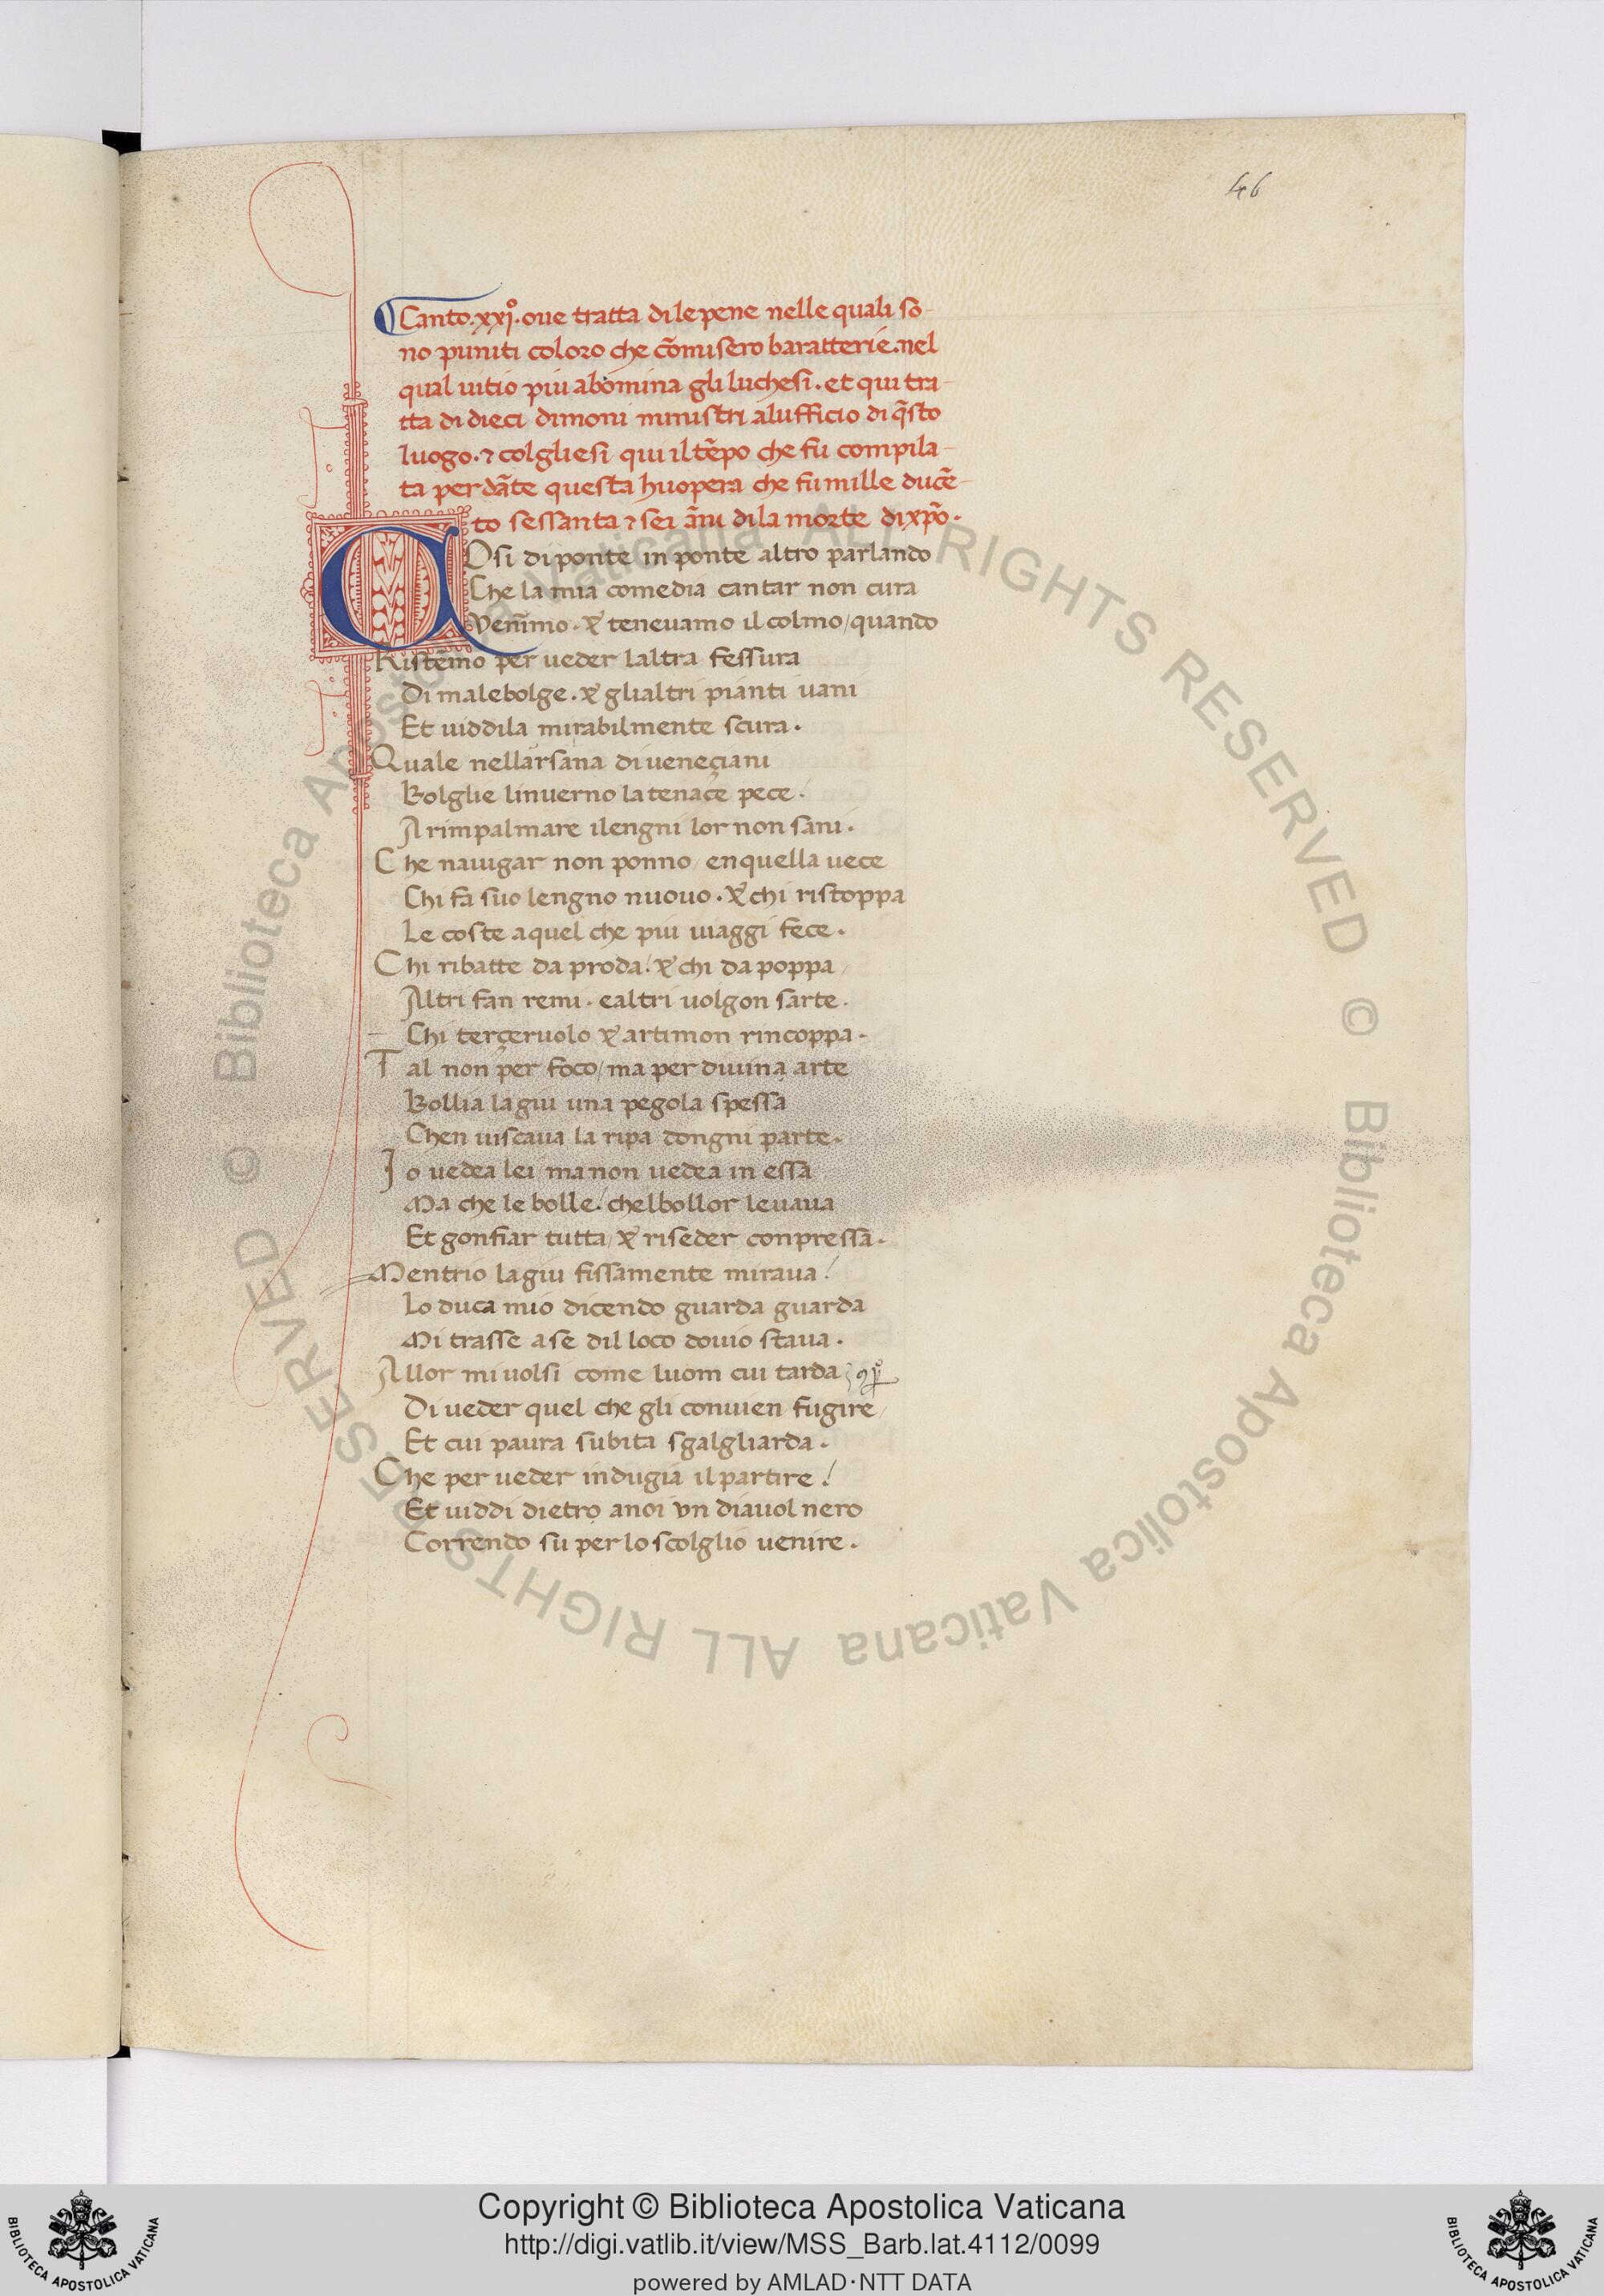 46
Canto.xxjº.oue tratta di le pene nelle quali so-
no puniti coloro che cōmisero baratterie.nel
qual uitio piu abomina gli luchesi.et qui tra-
tta di dieci dimoni ministri al ufficio di q̄sto
luogo.⁊ colgliesi qui il tēpo che fu compila-
ta per dāte questa huopera che fu mille ducē-
to sessanta ⁊ sei āni di la morte di xp̄o.
COsi di ponte in ponte altro parlando
Che la mia comedia cantar non cura
Venīmo. & teneuamo il colmo/quando
Ristēmo per ueder laltra fessura
Di malebolge. & glialtri pianti uani
Et uiddila mirabilmente scura.
Quale nellarsana di ueneçiani
Bolglie linuerno la tenace pece.
A rimpalmare ilengni lor non sani.
Che nauigar non ponno/ enquella uece
Chi fa suo lengno nuouo. & chi ristoppa
Le coste aquel che piu uiaggi fece.
Chi ribatte da proda/. & chi da poppa/
Altri fan remi. ealtri uolgon sarte.
Chi terçeruolo & artimon rincoppa.
Tal non per foco/ma per diuina arte
Bollia lagiu una pegola spessa
Chen uiscaua la ripa dongni parte.
Io uedea lei ma non uedea in essa
Ma che le bolle/. chelbollor leuaua
Et gonfiar tutta/ & riseder conpressa.
Mentrio lagiu fissamente miraua/.
Lo duca mio dicendo guarda guarda
Mi trasse ase dil loco douio staua.
Allor mi uolsi come luom cui tarda
Di ueder quel che gli conuien fugire/
Et cui paura subita sgalgliarda.
Che per ueder indugia il partire/.
Et uiddi dietro anoi vn diauol nero
Correndo su per lo scolglio uenire.
© Biblioteca Apostolica Vaticana ALL RIGHTS RESERVED © Biblioteca Apostolica Vaticana ALL RIGHTS RESERVED
Copyright © Biblioteca Apostolica Vaticana
http://digi.vatlib.it/view/MSS_Barb.lat.4112/0099
powered by AMLAD·NTT DATA
BIBLIOTECA APOSTOLICA VATICANA
BIBLIOTECA APOSTOLICA VATICANA